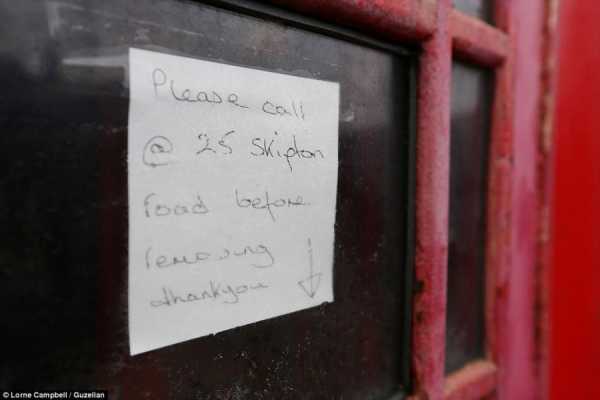 Please call
@ 25 Skipton
road before
removing
thankyou
© Lorne Campbell / Guzelian